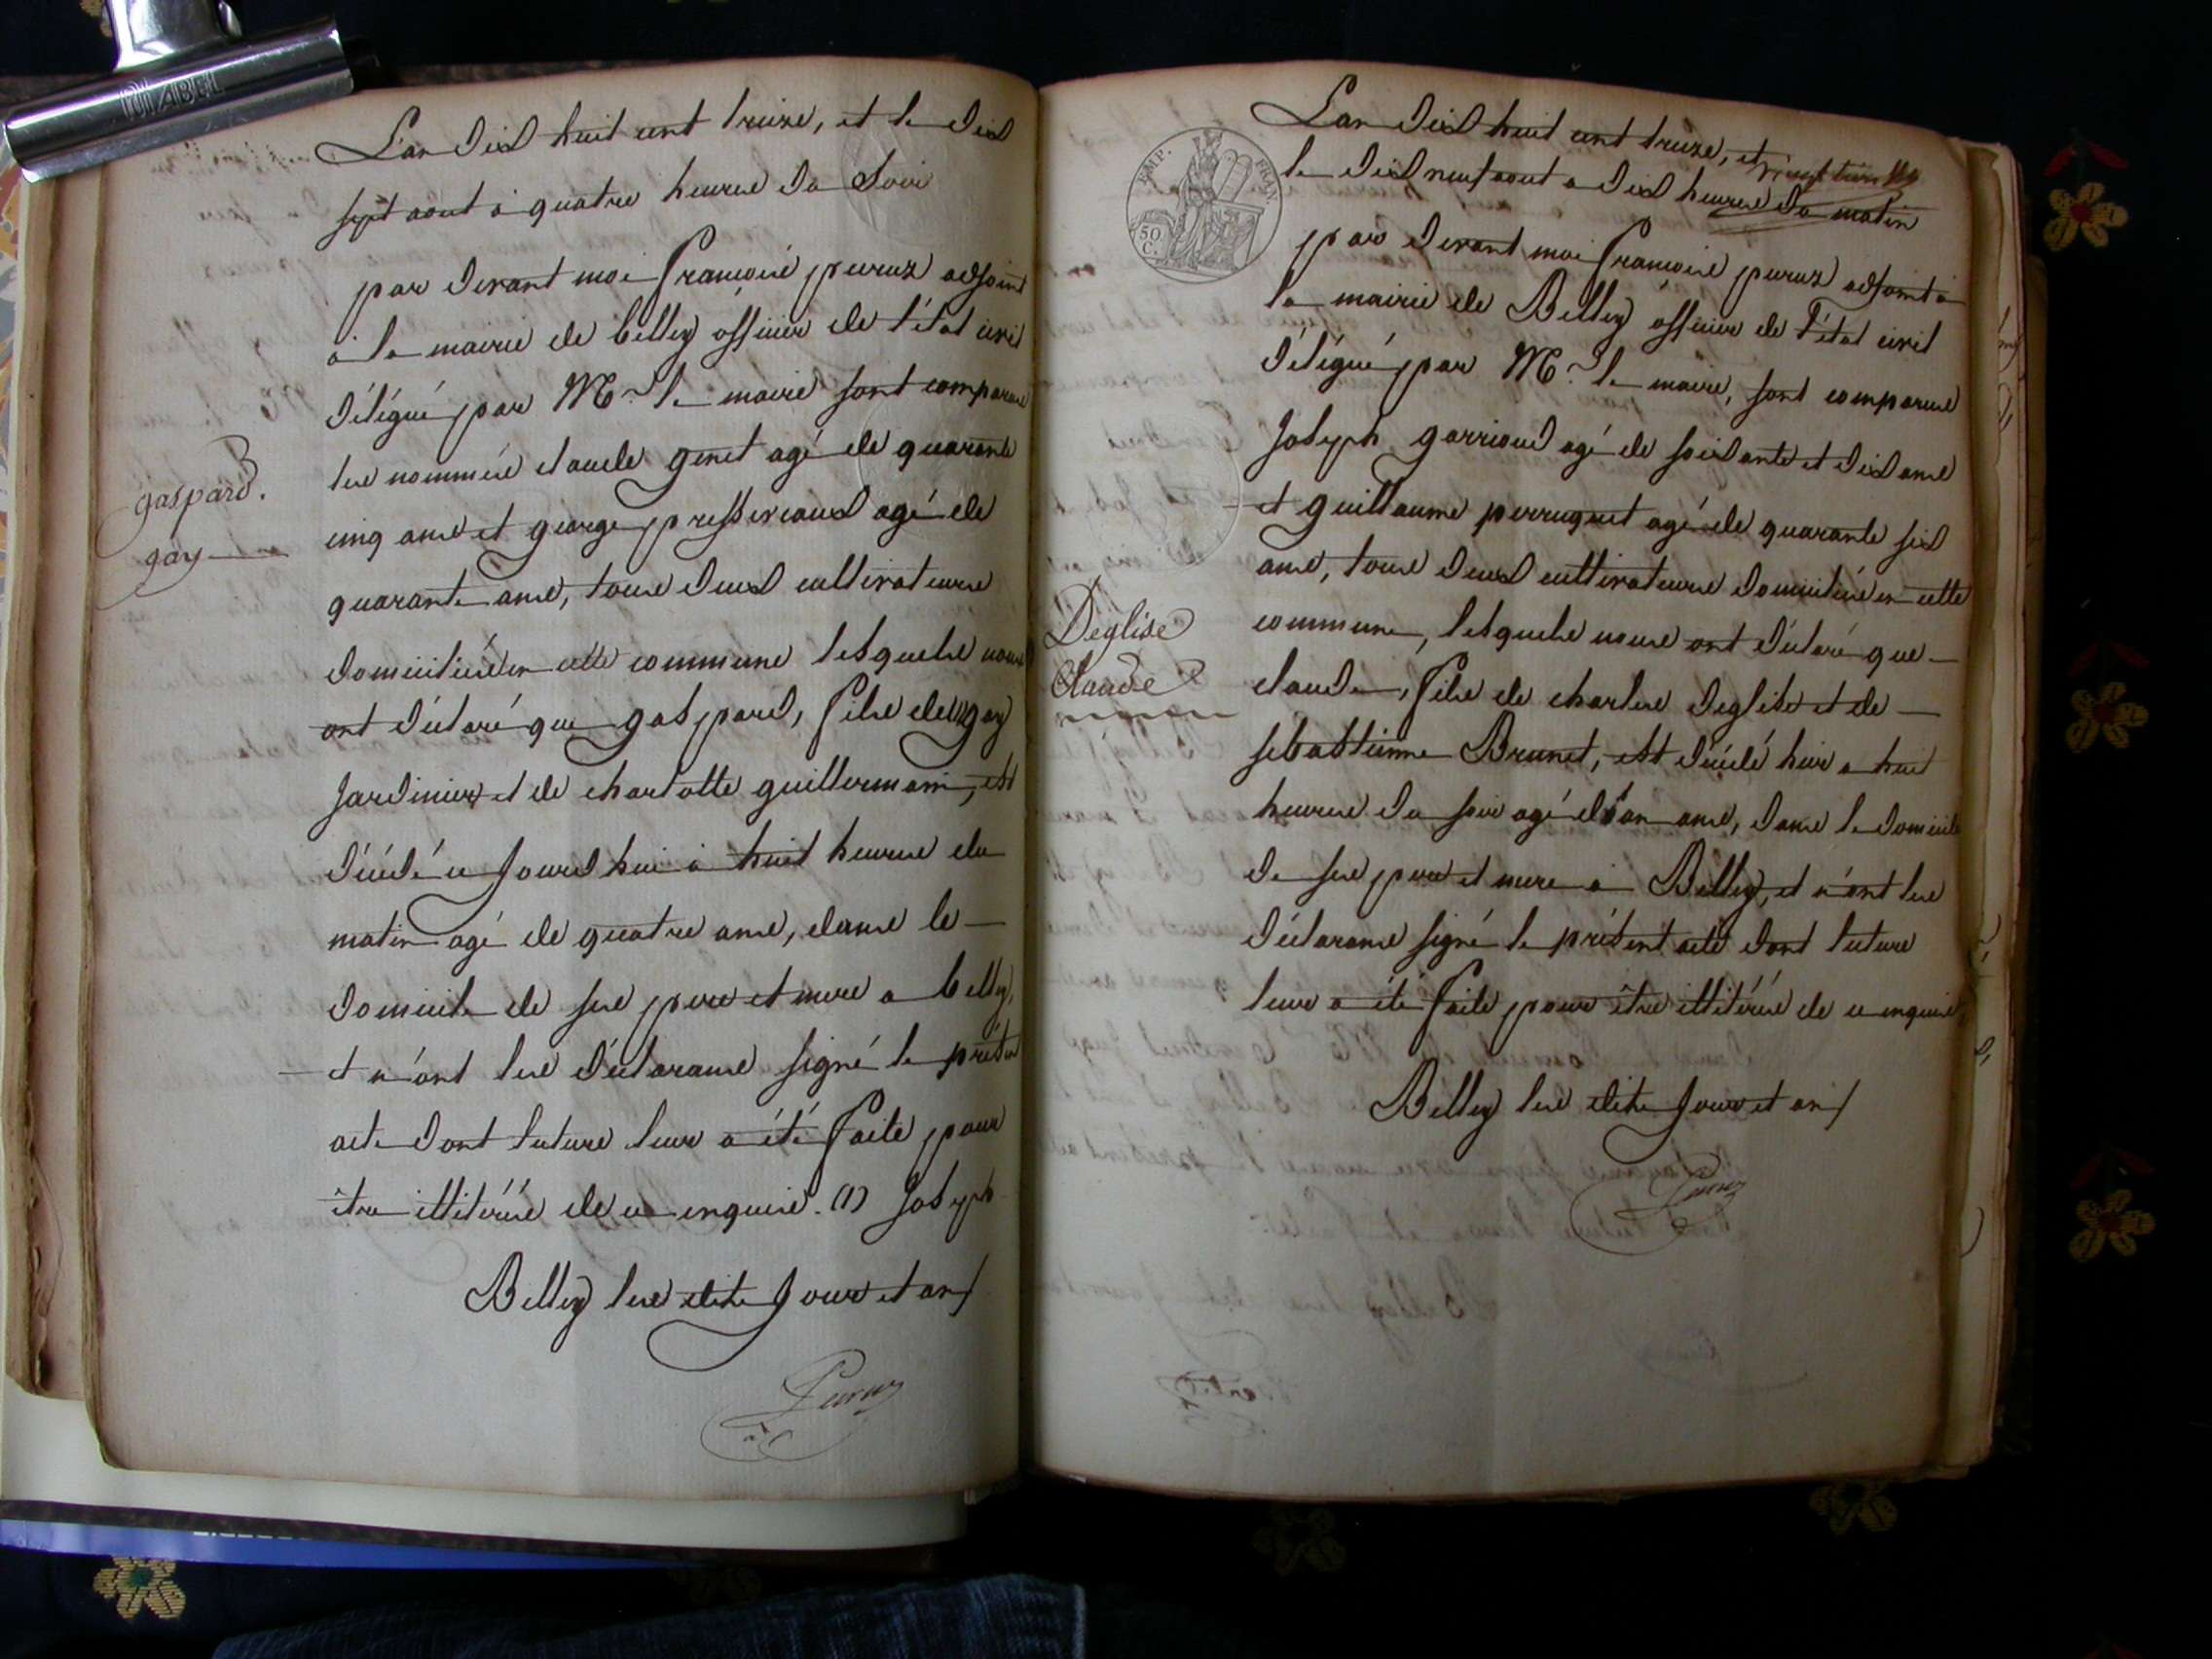 DIABEL
L'an dix huit cent treize, et le dix
sept aout à quatre heures du Soir
par devant moi françois peruz adjoint
à la mairie de belley officier de l'état civil
délégué par Mr le maire sont comparus
les nommés claude genet agé de quarante
cinq ans et george pressieraux agé de
quarante ans, tous deux cultivateurs
domiciliés en cette commune lesquels nous
ont déclaré que gaspard, fils de (1) gay
jardinier et de charlotte guillermain, est
décédé ce jourd'hui à huit heures du
matin agé de quatre ans, dans le
domicile de ses pere et mere a belley,
et n'ont les déclarans signé le présent
acte dont lecture leur a été faite pour
être illitérés de ce enquis. (1) joseph
Belley les dits jour et an
Peruz
gaspard.
gay
L'an dix huit cent treize, et
le dix neuf aout a dix heures du matin
par devant moi françois peruz adjoint à
la mairie de Belley officier de l'état civil
délégué par Mr le maire, sont comparus
joseph garrioud agé de soixante et dix ans
et guillaume perruquet agé de quarante six
ans, tous deux cultivateurs domiciliés en cette
commune, lesquels nous ont déclaré que
claude, fils de charles deglise et de
sebastienne Brunet, est décédé hier a huit
heures du soir agé d'un ans, dans le domicile
de ses pere et mere à Belley, et n'ont les
déclarans signé le présent acte dont lecture
leur a été faite pour être illitérés de ce enquis,
Belley les dits jour et an
Peruz
Deglise
Claude
EMP. FRAN.
50 C.